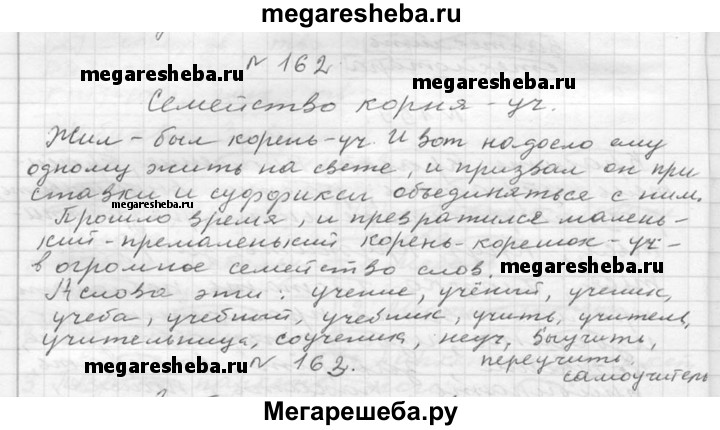 megaresheba.ru
№ 162.
megaresheba.ru
megaresheba.ru
Семейство корня -уч.
Жил-был корень-уч. И вот надоело ему
одному жить на свете, и призвал он при
ставки и суффиксы объединяться с ним.
megaresheba.ru
Прошло время, и превратился малень-
кий-премаленький корень-корешок-уч-
в огромное семейство слов.
megaresheba.ru
А слова эти: учение, учёный, ученик,
учеба, учебный, учебник, учить, учитель,
учительница, соученик, неуч, выучить,
переучить,
самоучитель
megaresheba.ru
№ 163.
Мегарешеба.ру